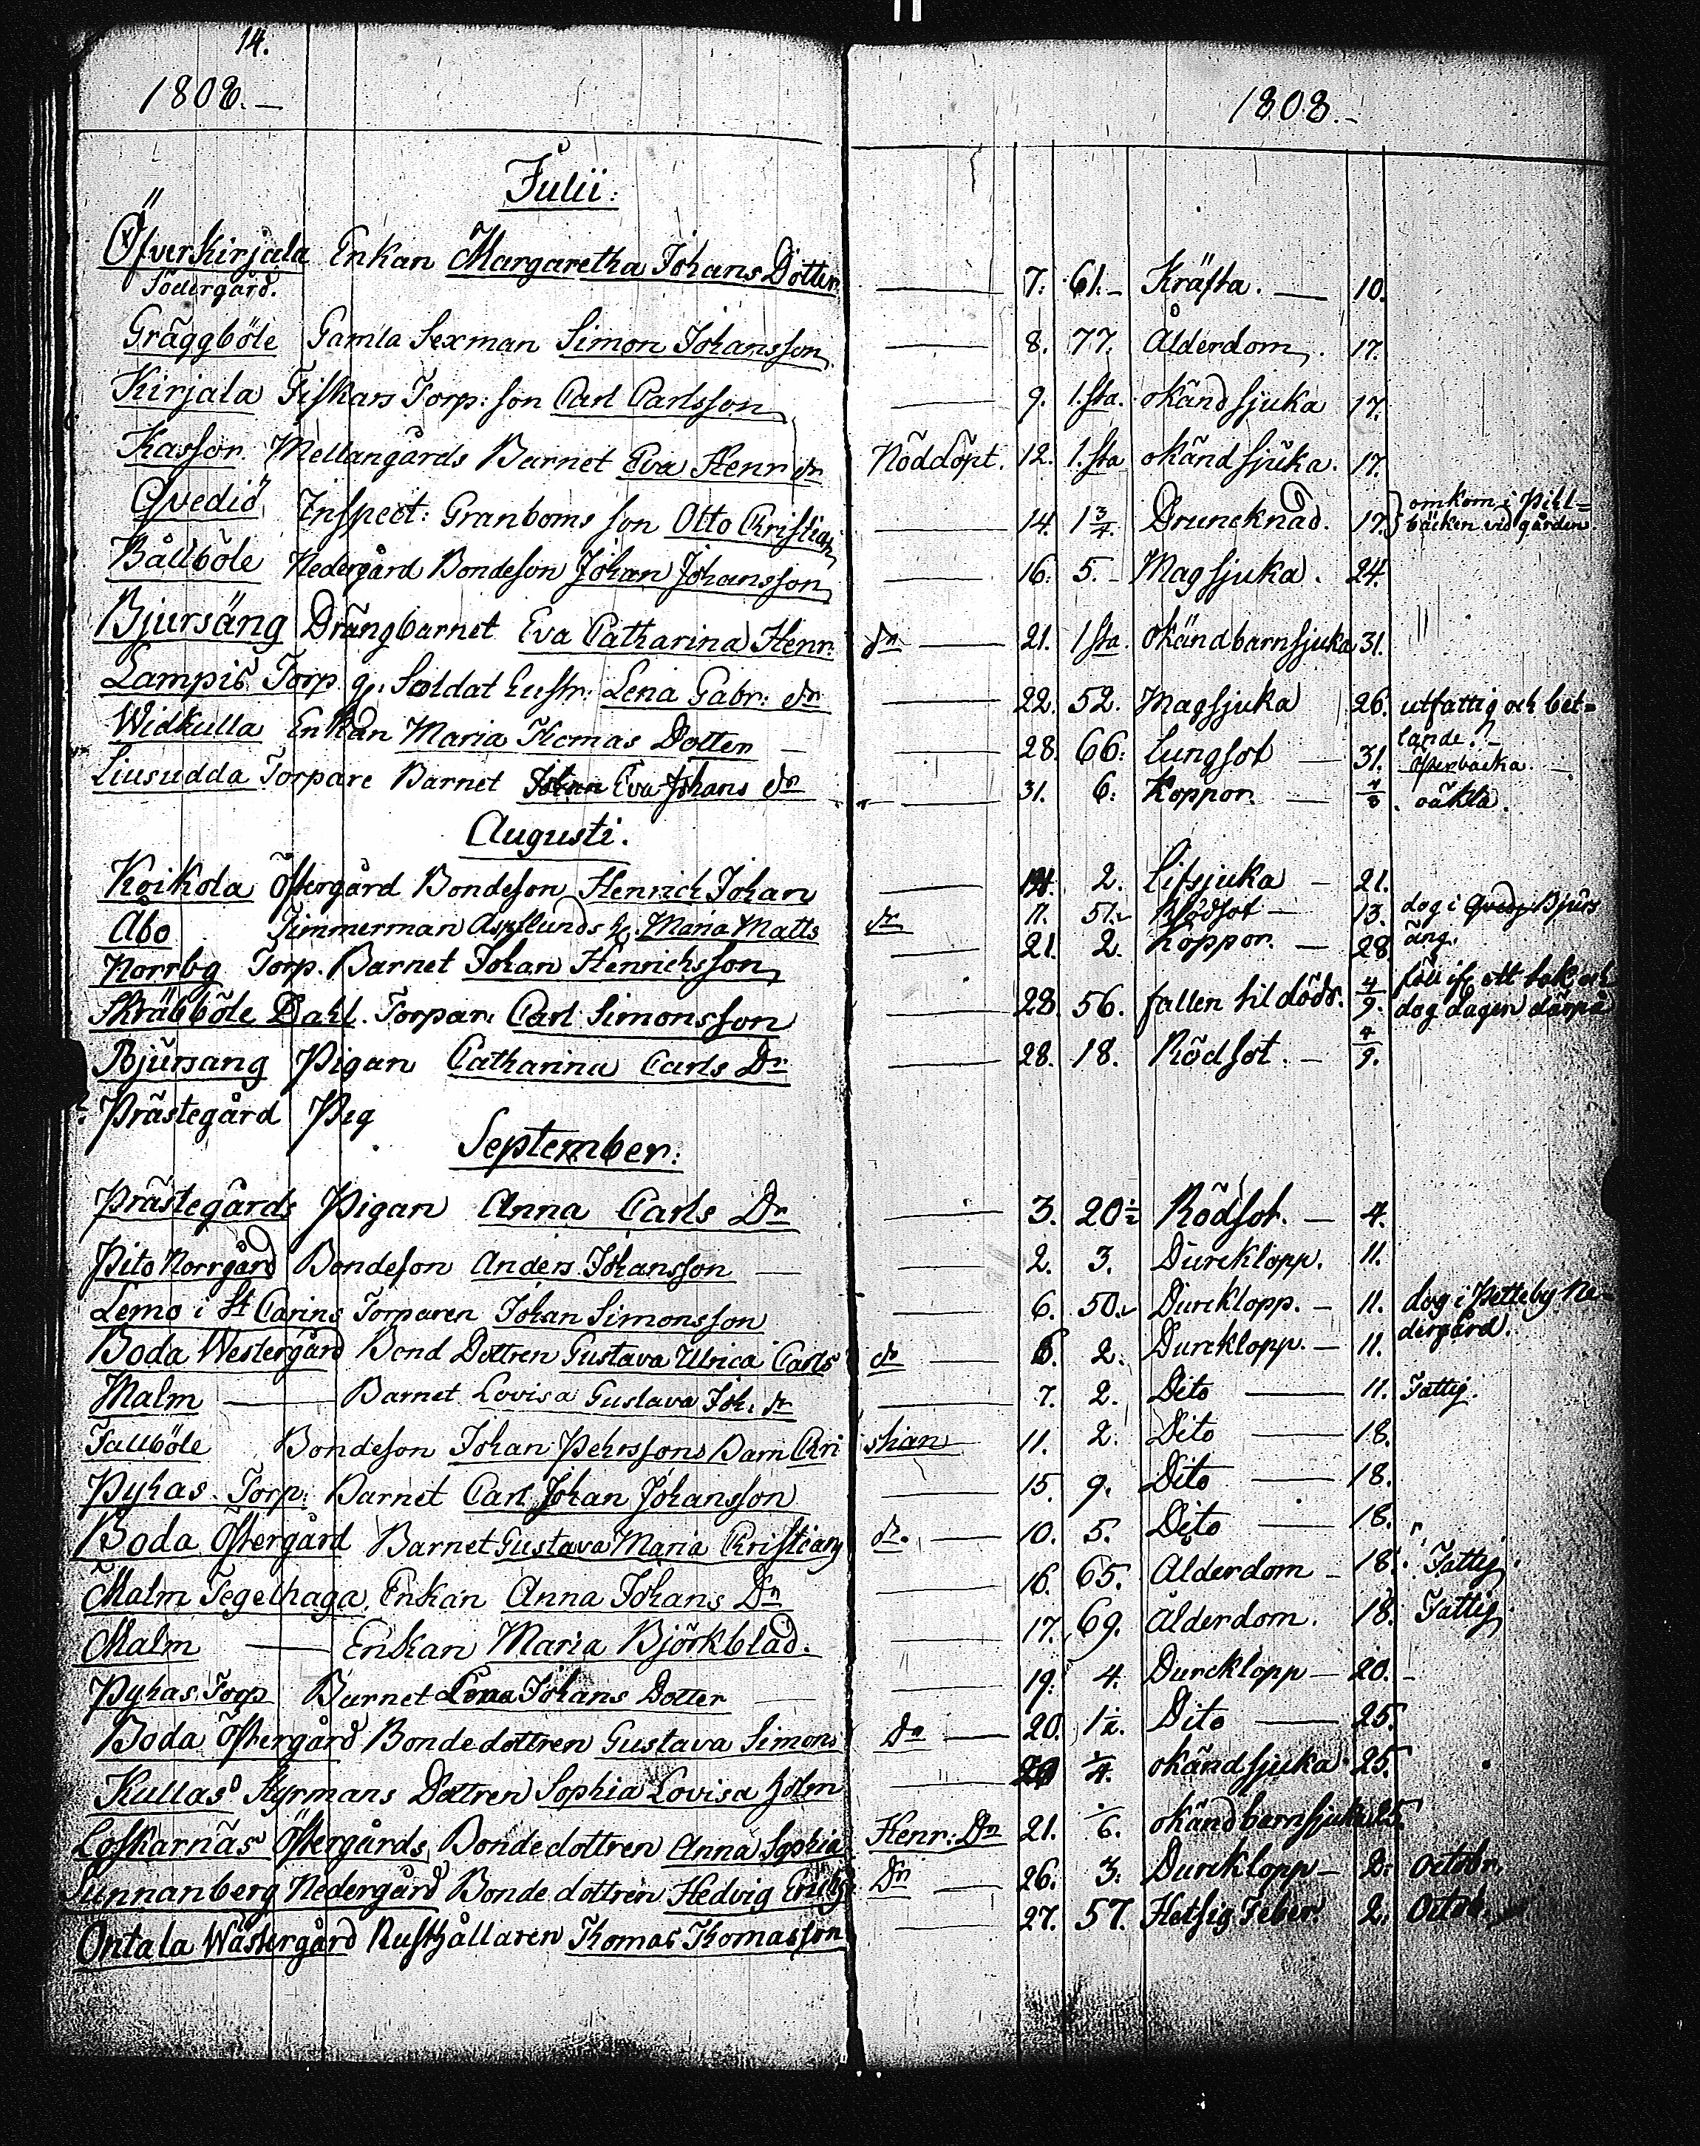 14.
1808.— 1808.—
Julii:
Öfverkirjala Enkan Margaretha Johans Dotter — 7. 61.— Kräfta. — 10.
Södergård.
Gräggböle Gamla Sexman Simon Johansson — 8. 77. Ålderdom. 17.
Kirjala Fiskars Torp: son Carl Carlsson — 9. 1.sta. okänd sjuka 17.
Kassor. Mellangårds Barnet Eva Henr dr Nöddöpt. 12. 1.sta okänd sjuka. 17.
Qvediö Inspect: Granboms son Otto Christian — 14. 1 3/4. Druncknad. 17. omkom i Pill=
bäcken vid gården.
Bållböle Nedergård Bondeson Johan Johansson — 16. 5.— Magsjuka. 24.
Bjursäng Drängbarnet Eva Catharina Henr: dr — 21. 1 sta. okänd barnsjuka 31.
Lampis Torp. g. Soldat hustr: Lena Gabr: dr — 22. 52. Magsjuka 26. utfattig och bet=
lande.
Widkulla Enkan Maria Thomas Dotter — 28. 66. Lungsot — 31.
Liusudda Torpare Barnet Eva Johans dr — 31. 6. Koppor. — 7/8. oäkta.
Augusti.
Koikola Östergård Bondeson Henrich Johan — 2. Lifsjuka — 21.
Åbo Timmerman Asplunds h. Maria Matts dr 11. 51. Rödsot — 13. dog i Bjurs
äng.
Norrby Torp. Barnet Johan Henrichsson — 21. 2. Koppor. — 28.
Skräbböle Dahl. Torparn Carl Simonsson — 28. 56. fallen til döds. 4/9. föll af ett tak och
dog dagen därpå
Bjursang Pigan Catharina Carls Dr — 28. 18. Rödsot. — 4/9.
Prästegård Pig
September:
Prästegårds Pigan Anna Carls Dr — 3. 20 1/2 Rödsot. — 4.
Pito Norrgård Bondeson Anders Johansson — 2. 3. Durcklopp. 11.
Lemo i St Carins Torparen Johan Simonsson — 6. 50. Durcklopp. — 11. dog i Petteby Ne=
dergård.
Boda Westergård Bond Dottren Gustava Ulrica Carls dr — 6. 2. Durcklopp. — 11.
Malm — Barnet Lovisa Gustava Joh. dr — 7. 2. Dito — 11. Fattig.
Tallböle Bondeson Johan Pehrssons Barn Chri stian 11. 2. Dito — 18.
Pyhas. Torp: Barnet Carl Johan Johansson — 15. 9. Dito — 18.
Boda Östergård Barnet Gustava Maria Christians dr. — 10. 5. Dito — 18.
Malm Tegelhaga Enkan Anna Johans Dr — 16. 65. Ålderdom — 18. Fattig.
Malm — Enkan Maria Björkblad. — 17. 69. Ålderdom. 18. Fattig
Pyhas Torp Barnet Lena Johans Dotter — 19. 4. Durcklopp — 20.—
Boda Östergård Bondedottren Gustava Simons Dr — 20. 1 1/2. Dito — 25.
Kullas Styrmans Dottren Sophia Lovisa Holm — 1/4. okänd sjuka 25.
Loskarnäs Östergårds Bondedottren Anna Sophia Henr: Dr 21. 1/6. okänd barnsjuka 25.
Sunnanberg Nedergård Bondedottren Hedvig Erichs Dr — 26. 3. Durcklopp — 2. Octobr.
Ontala Wästergård Rusthållaren Thomas Thomasson — 27. 57. Hetsig Feber. 2. Octob.